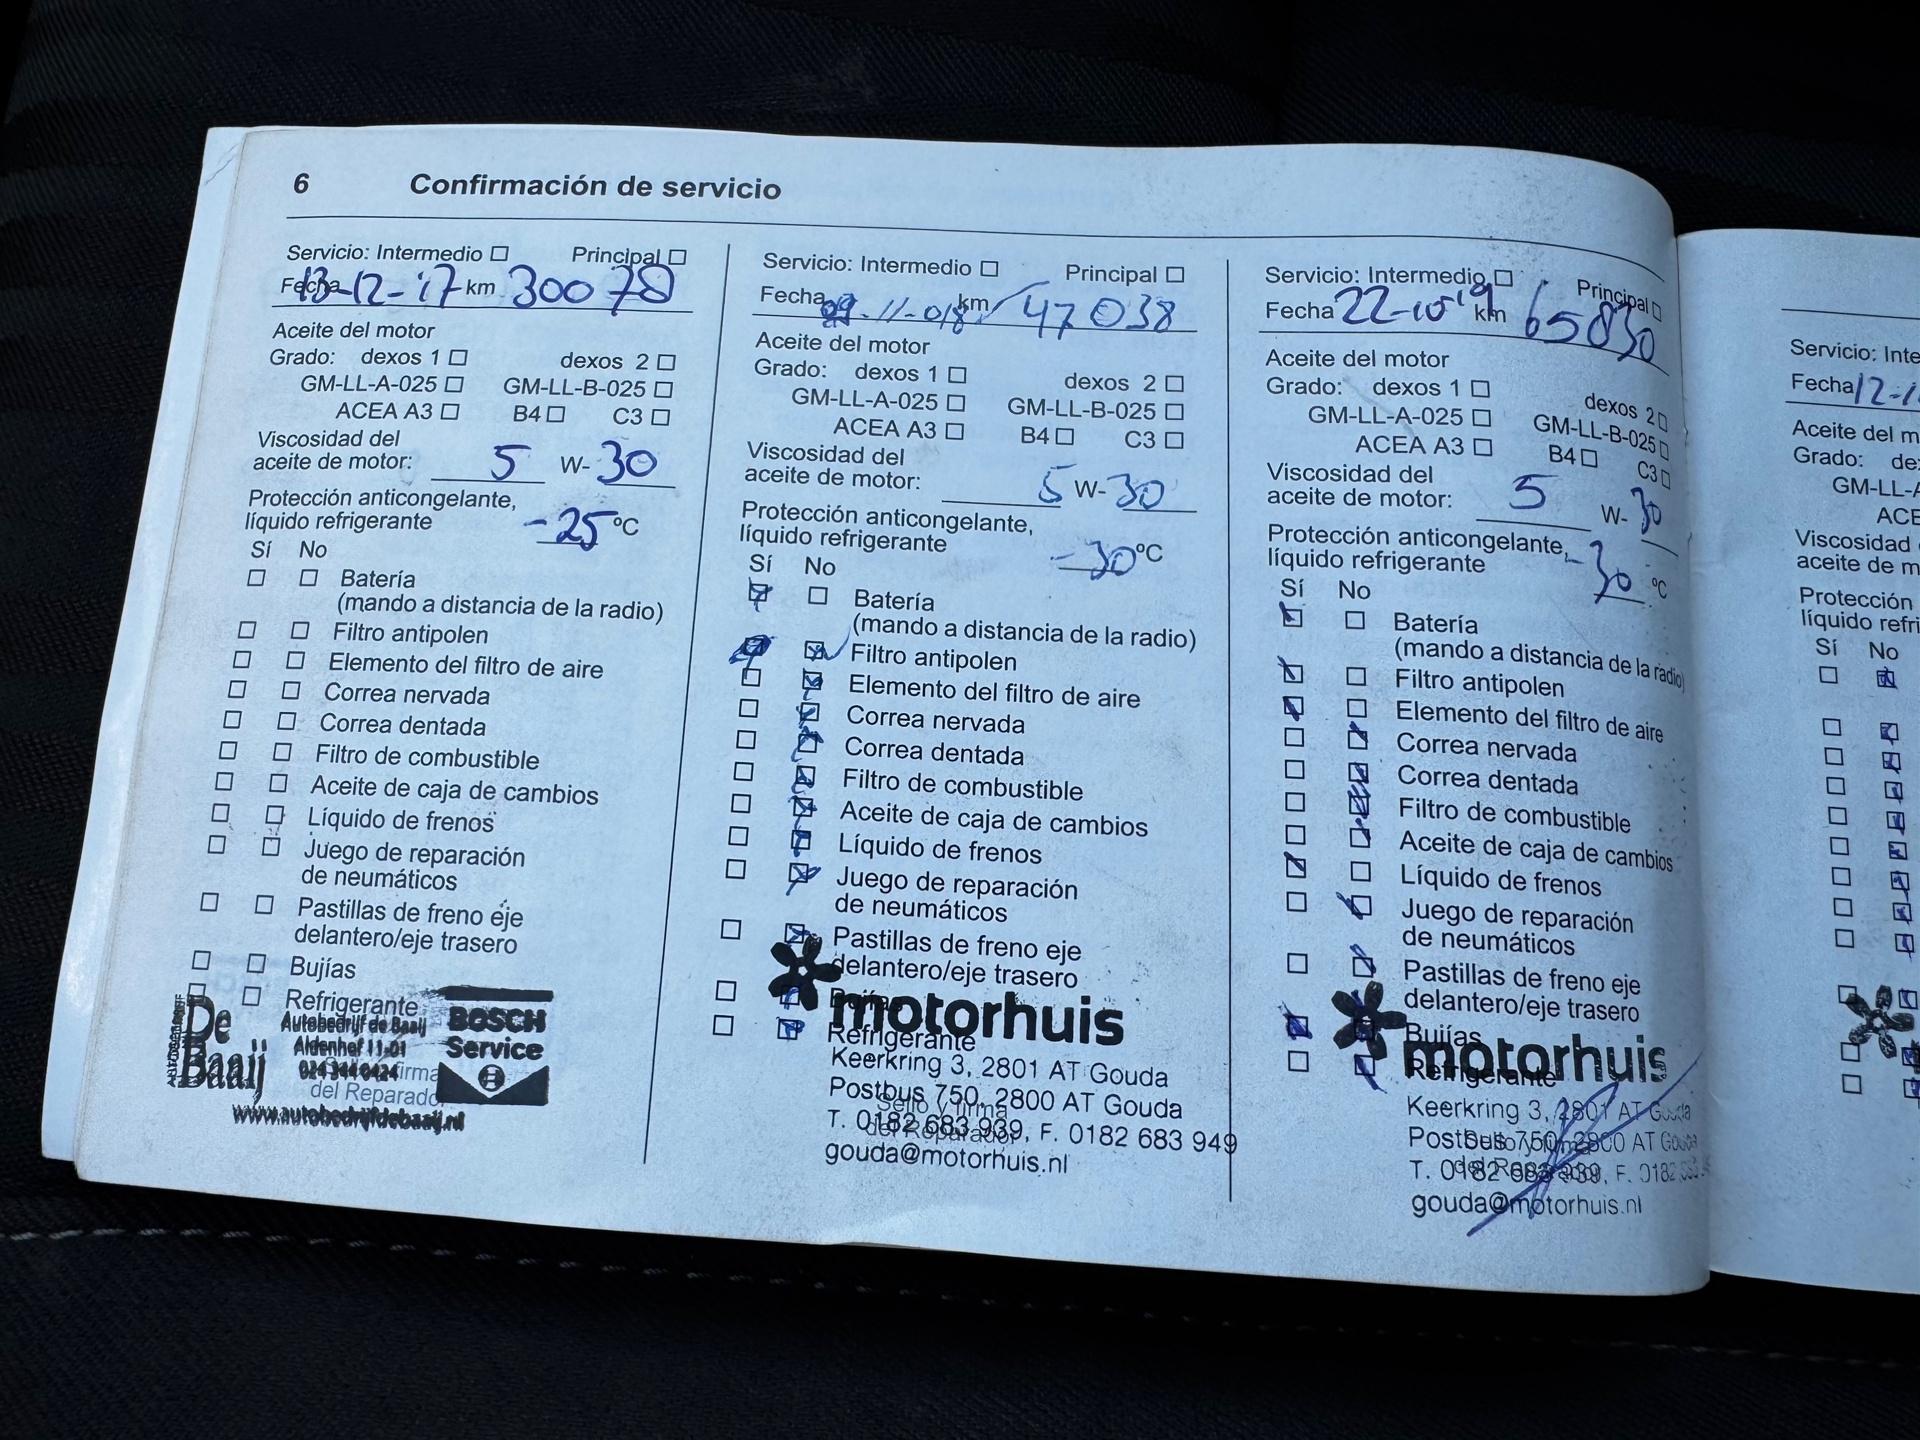 6 Confirmación de servicio
Servicio: Intermedio Principal
Fecha 13-12-17 km 30078
Aceite del motor
Grado: dexos 1 dexos 2
GM-LL-A-025 GM-LL-B-025
ACEA A3 B4 C3
Viscosidad del
aceite de motor: 5 W-30
Protección anticongelante,
líquido refrigerante -25 ºC
Sí No
Batería
(mando a distancia de la radio)
Filtro antipolen
Elemento del filtro de aire
Correa nervada
Correa dentada
Filtro de combustible
Aceite de caja de cambios
Líquido de frenos
Juego de reparación
de neumáticos
Pastillas de freno eje
delantero/eje trasero
Bujías
Refrigerante
De Baaij
Autobedrijf de Baaij
Aldenhof 11-01
024 344 0424
firma
del Reparador
www.autobedrijfdebaaij.nl
BOSCH
Service
Servicio: Intermedio Principal
Fecha 09-11-018 km 47038
Aceite del motor
Grado: dexos 1 dexos 2
GM-LL-A-025 GM-LL-B-025
ACEA A3 B4 C3
Viscosidad del
aceite de motor: 5 W-30
Protección anticongelante,
líquido refrigerante -30 ºC
Sí No
Batería
(mando a distancia de la radio)
Filtro antipolen
Elemento del filtro de aire
Correa nervada
Correa dentada
Filtro de combustible
Aceite de caja de cambios
Líquido de frenos
Juego de reparación
de neumáticos
Pastillas de freno eje
delantero/eje trasero
Bujías
motorhuis
Refrigerante
Keerkring 3, 2801 AT Gouda
Postbus 750, 2800 AT Gouda
Sello y firma
T. 0182 683 939, F. 0182 683 949
del Reparador
gouda@motorhuis.nl
Servicio: Intermedio Principal
Fecha 22-10-19 km 65830
Aceite del motor
Grado: dexos 1 dexos 2
GM-LL-A-025 GM-LL-B-025
ACEA A3 B4 C3
Viscosidad del
aceite de motor: 5 W-30
Protección anticongelante,
líquido refrigerante -30 ºC
Sí No
Batería
(mando a distancia de la radio)
Filtro antipolen
Elemento del filtro de aire
Correa nervada
Correa dentada
Filtro de combustible
Aceite de caja de cambios
Líquido de frenos
Juego de reparación
de neumáticos
Pastillas de freno eje
delantero/eje trasero
Bujías
motorhuis
Refrigerante
Keerkring 3, 2801 AT Gouda
Postbus 750, 2800 AT Gouda
Sello y firma
T. 0182 683 939, F. 0182
del Reparador
gouda@motorhuis.nl
Servicio: Inte
Fecha 12-1
Aceite del m
Grado: de
GM-LL-A
ACE
Viscosidad
aceite de m
Protección
líquido refri
Sí No